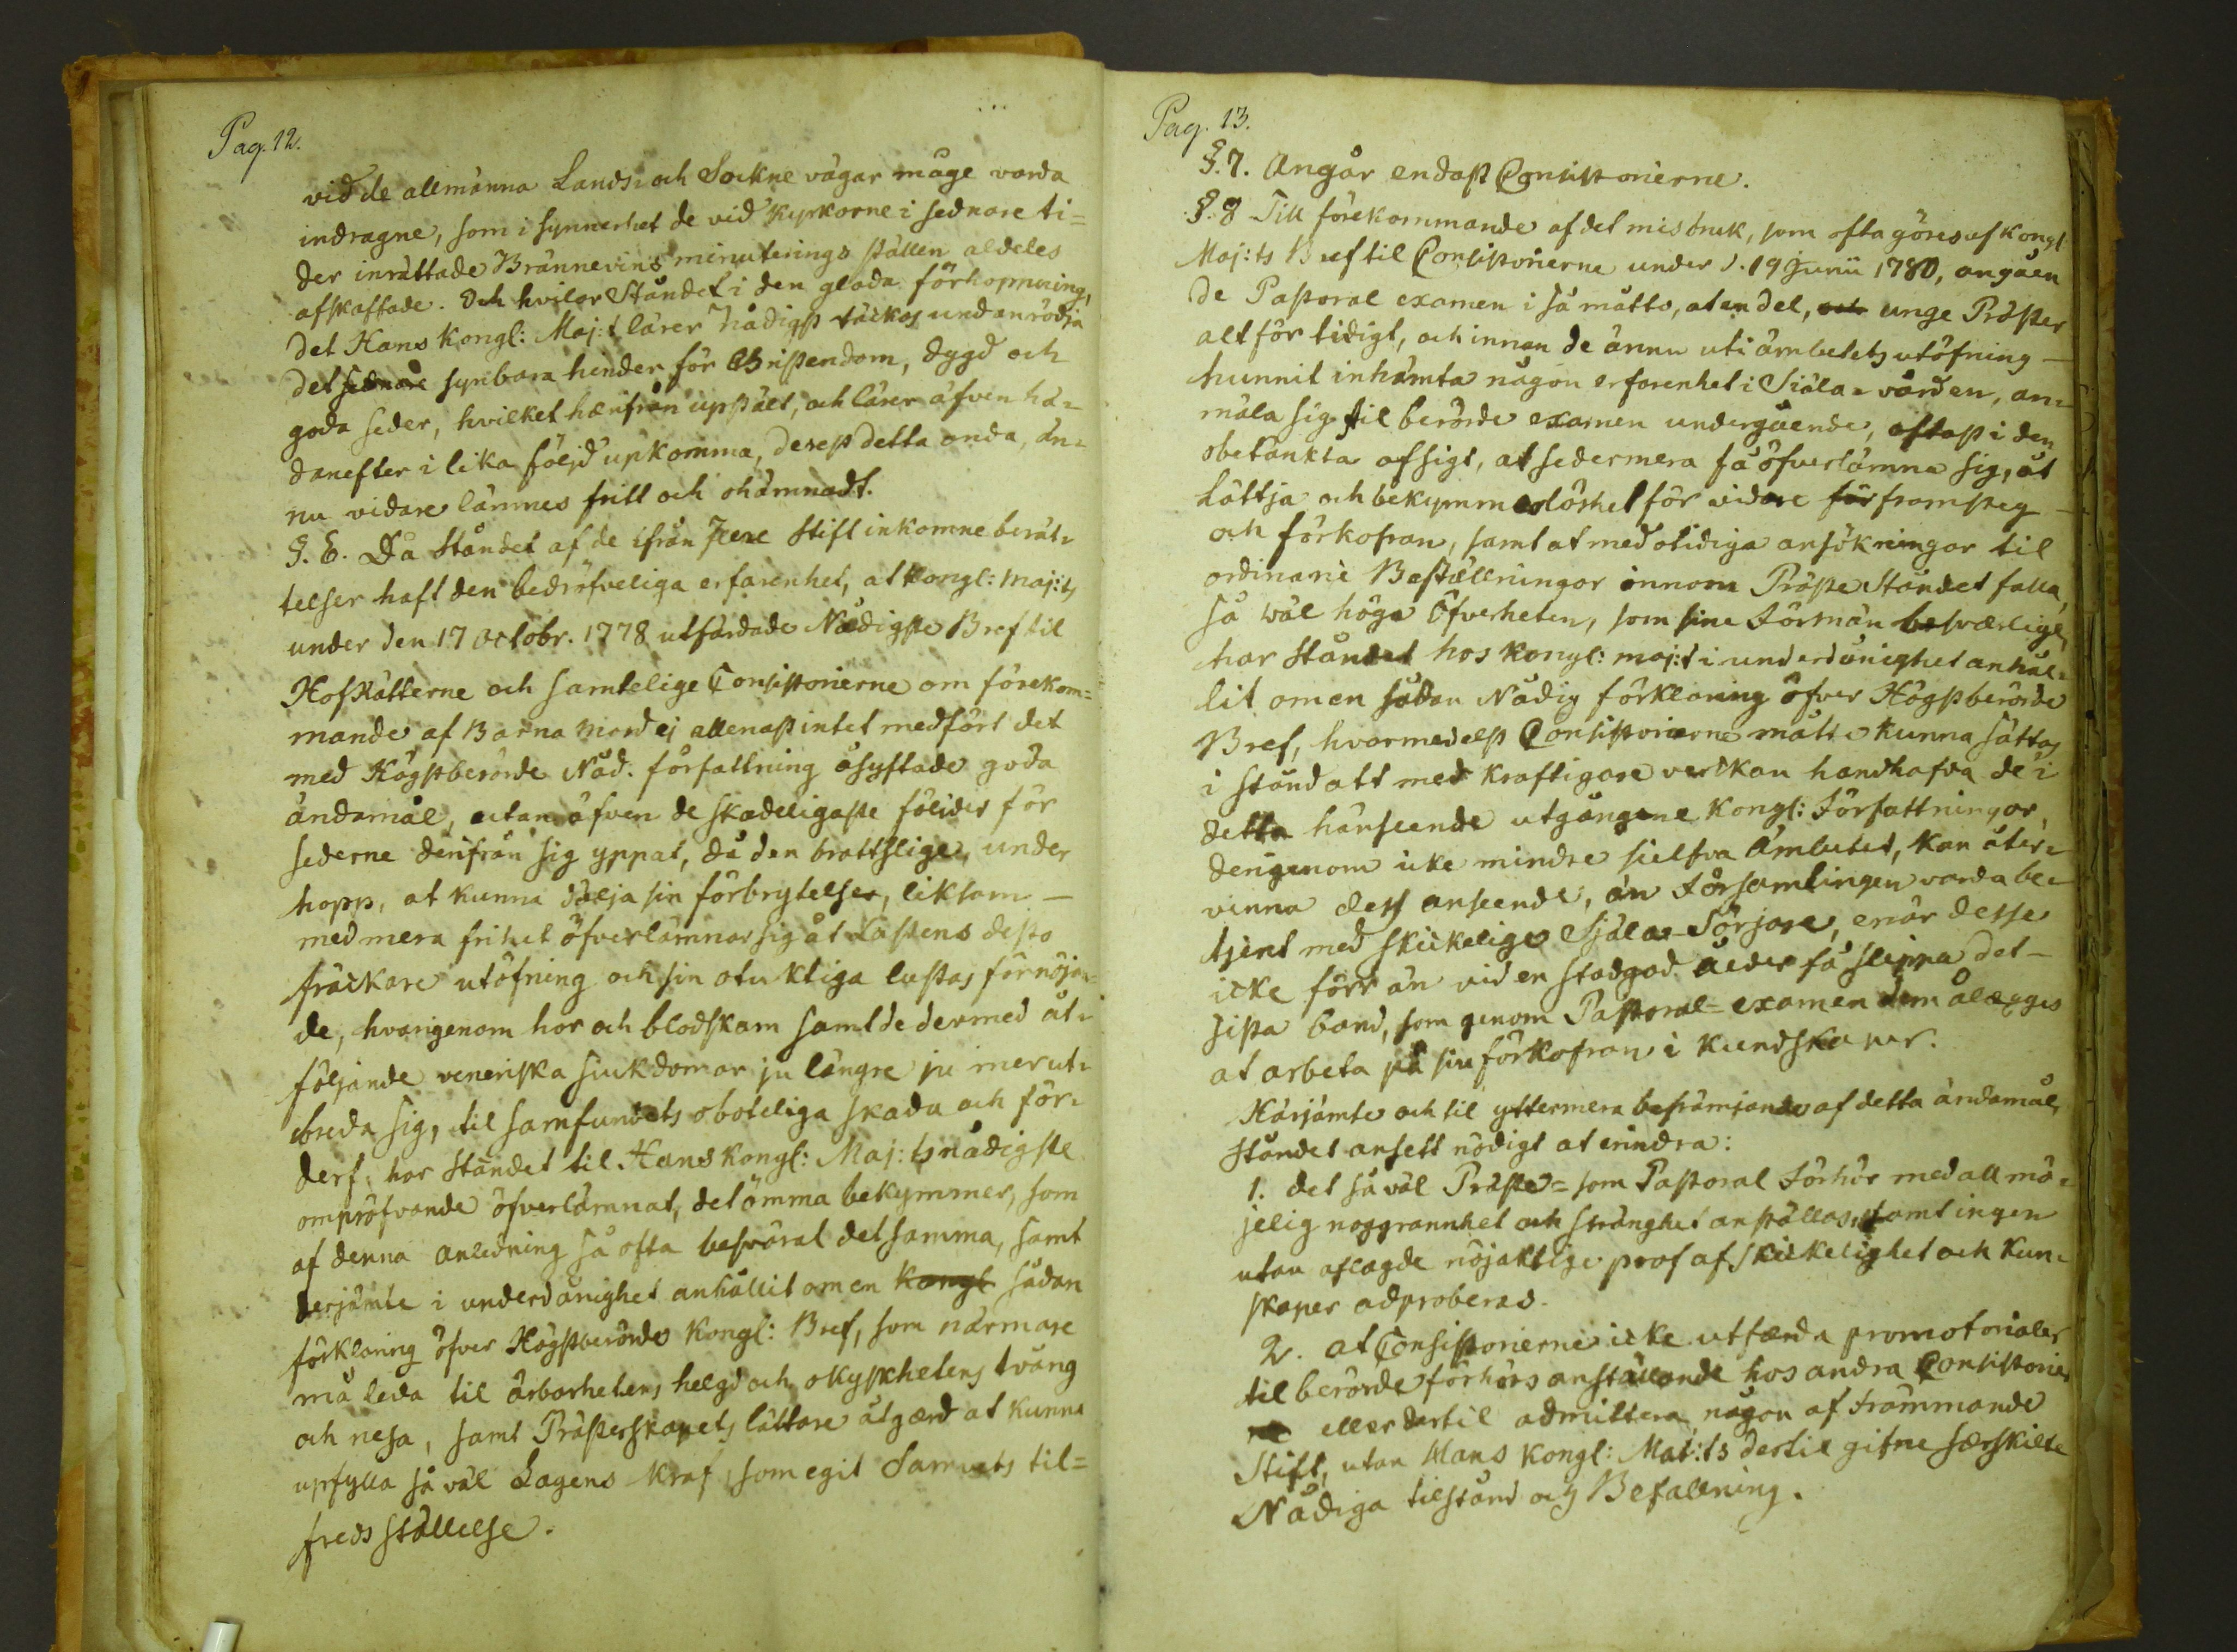 Pag. 12.
vid de allmänna Lands- och Sockne vägar måge varda
indragne, som i synnerhet de vid kyrkorne i sednare ti=
der inrättade Brännevins minuterings ställen aldeles
afskaffade. Och hvilar Ståndet i den glada förhoppning,
det Hans Kongl: Maj:t lärer Nådigst täckas undanrödja
det sednare synbara hinder för Christendom, dygd och
goda seder, hvilket härifrån uppstält, och lärer äfven hä=
danefter i lika följd upkomma, derest detta onda, än=
nu vidare lämnes fritt och ohämnadt.
§. 6. Då Ståndet af de ifrån flere Stift inkomne berät=
telser haft den bedröfveliga erfarenhet, at Kongl: Maj:ts
under den 17 Octobr. 1778 utfärdade Nådigste Bref til
HofRätterne och samtelige Consistorierne om förekom=
mande af Barna Mord ej allenast intet medfört det
med Högstberörde Nåd. författning åsyftade goda
ändamål, utan äfven de skadeligaste följder för
sederne derifrån sig yppat, då den brottslige, under
hopp, at kunna dölja sin förbrytelser, liksom —
med mera frihet öfverlämnar sig åt Lastens desto
fräckare utöfning och sin otuktiga lustas förnöjan=
de, hvarigenom hor och blodskam samt de dermed åt=
följande veneriska sjukdomar ju längre ju mer ut=
breda sig, til samfundets oboteliga skada och för=
derf; har Ståndet til Hans Kongl: Maj:ts nådigste
ompröfvande öfverlämnat, det ömma bekymmer, som
af denna anledning så ofta besvärat det samma, samt
derjämte i underdånighet anhållit om en Kongl sådan
förklaring öfver Högstberörde Kongl: Bref, som närmare
må leda til ärbarhetens helgd och okyskhetens tvång
och nesa, samt Prästerskapets lättare åtgärd at kunna
upfylla så väl Lagens kraf som egit Samvets til=
freds ställelse.
Pag. 13.
§. 7. Angår endast Consistorierne.
§. 8 Till förekommande af det misbruk, som ofta göres af Kongl
Maj:ts Bref til Consistorierne under d. 19 Junii 1780, angåen
de Pastoral examen i så måtto, at en del, och unge Präster
alt för tidigt, och innan de ännu uti ämbetets utöfning —
hunnit inhämta någon erfarenhet i Siäla-vården, an=
mäla sig til berörde examen undergående, oftast i den
obetänkta afsigt, at sedermera få öfverlämna sig, åt
Lättja och bekymmerlöshet för vidare för framsteg —
och förkofran, samt at med otidiga ansökningar til
ordinarie Beställningar innom Präste Ståndet falla,
så väl höga Öfverheten, som sine Förmän besvärlige,
har Ståndet hos Kongl: Maj:t i underdånighet anhål=
lit om en sådan Nådig förklaring öfver Högstberörde
Bref, hvarmedelst Consistorierne måtte kunna sättas
i stånd att med kraftigare verkan handhafva de i
detta hänseende utgångne Kongl: Författningar,
derigenom icke mindre sielfva Ämbetet, kan åter=
vinna dess anseende, än Församlingen varda be=
tjent med skickelige Själa-Sörjare, enär desse
icke förr än vid en stadgad ålder få slippa det —
sista band, som genom Pastoral-examen dem ålägges
at arbeta på sin förkofran i kundskaper.
Härjämte och til yttermera befrämjande af detta ändamål,
Ståndet ansett nödigt at erindra:
1. det så väl Präste= som Pastoral Förhör med all mö=
jelig noggrannhet och stränghet anställas, samt ingen
utan aflagde nöjaktige prof af skickelighet och kun=
skaper adproberas.
2. at Consistorierne icke utfärda promotorialer
til berörde förhörs anställande hos andra Consistorier
eller dertil admittera någon af främmande
Stift, utan Hans Kongl: Maj:ts dertil gifne särskilte
Nådiga tilstånd och Befallning.